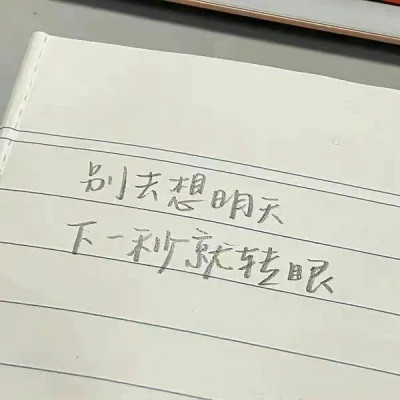 别去想明天
下一秒就转眼